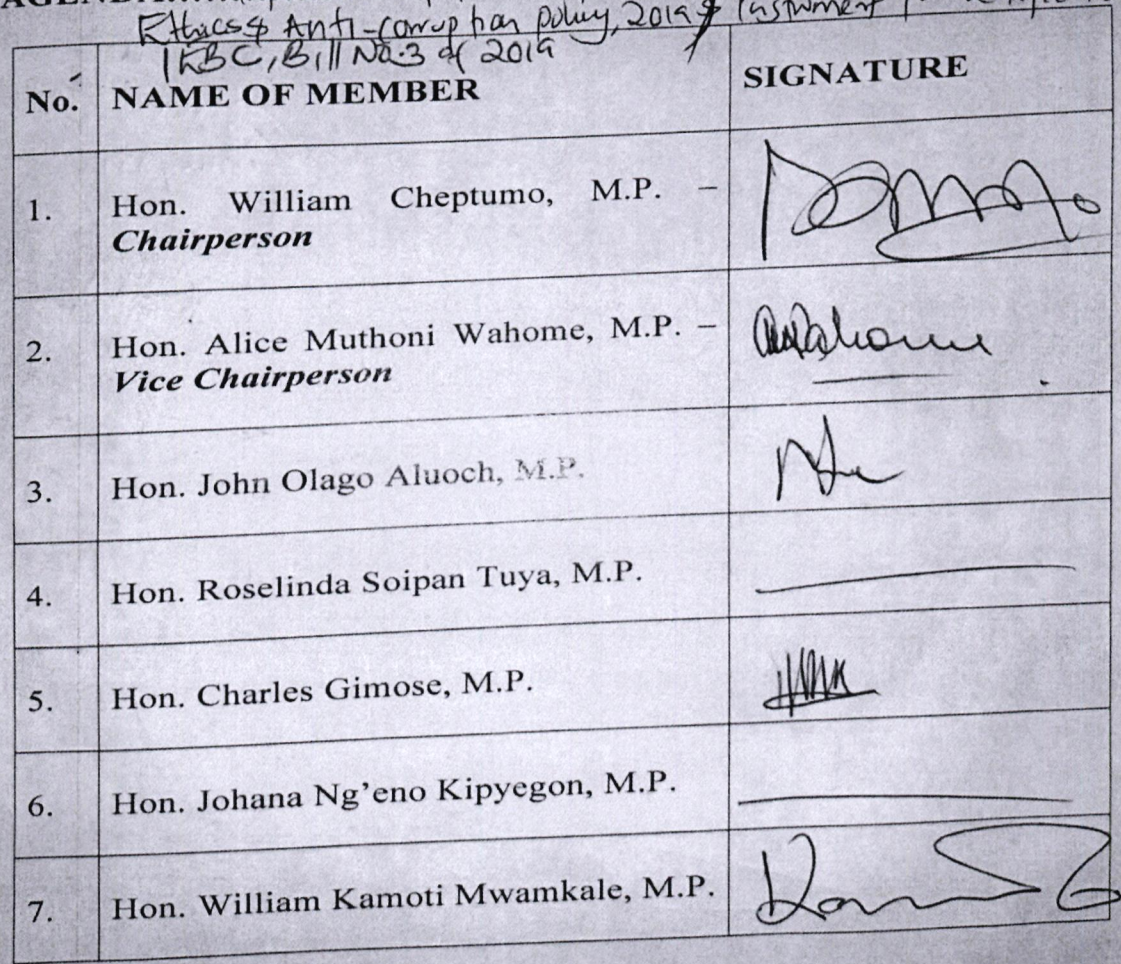 Ethics & Anti-Corruption Policy, 2019 & Instrument
IEBC, Bill No.3 of 2019
No. NAME OF MEMBER SIGNATURE
1. Hon. William Cheptumo, M.P. –
Chairperson
2. Hon. Alice Muthoni Wahome, M.P. –
Vice Chairperson
3. Hon. John Olago Aluoch, M.P.
4. Hon. Roselinda Soipan Tuya, M.P.
5. Hon. Charles Gimose, M.P.
6. Hon. Johana Ng’eno Kipyegon, M.P.
7. Hon. William Kamoti Mwamkale, M.P.